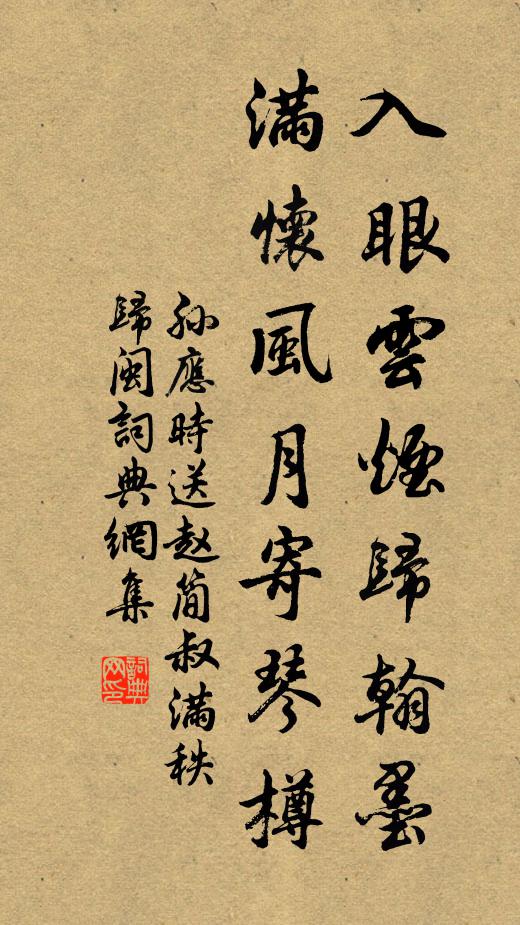 入眼雲煙歸翰墨
滿懷風月寄琴樽
孙應時送赵简叔滿秩
歸闽詞典網集
詞典
网印